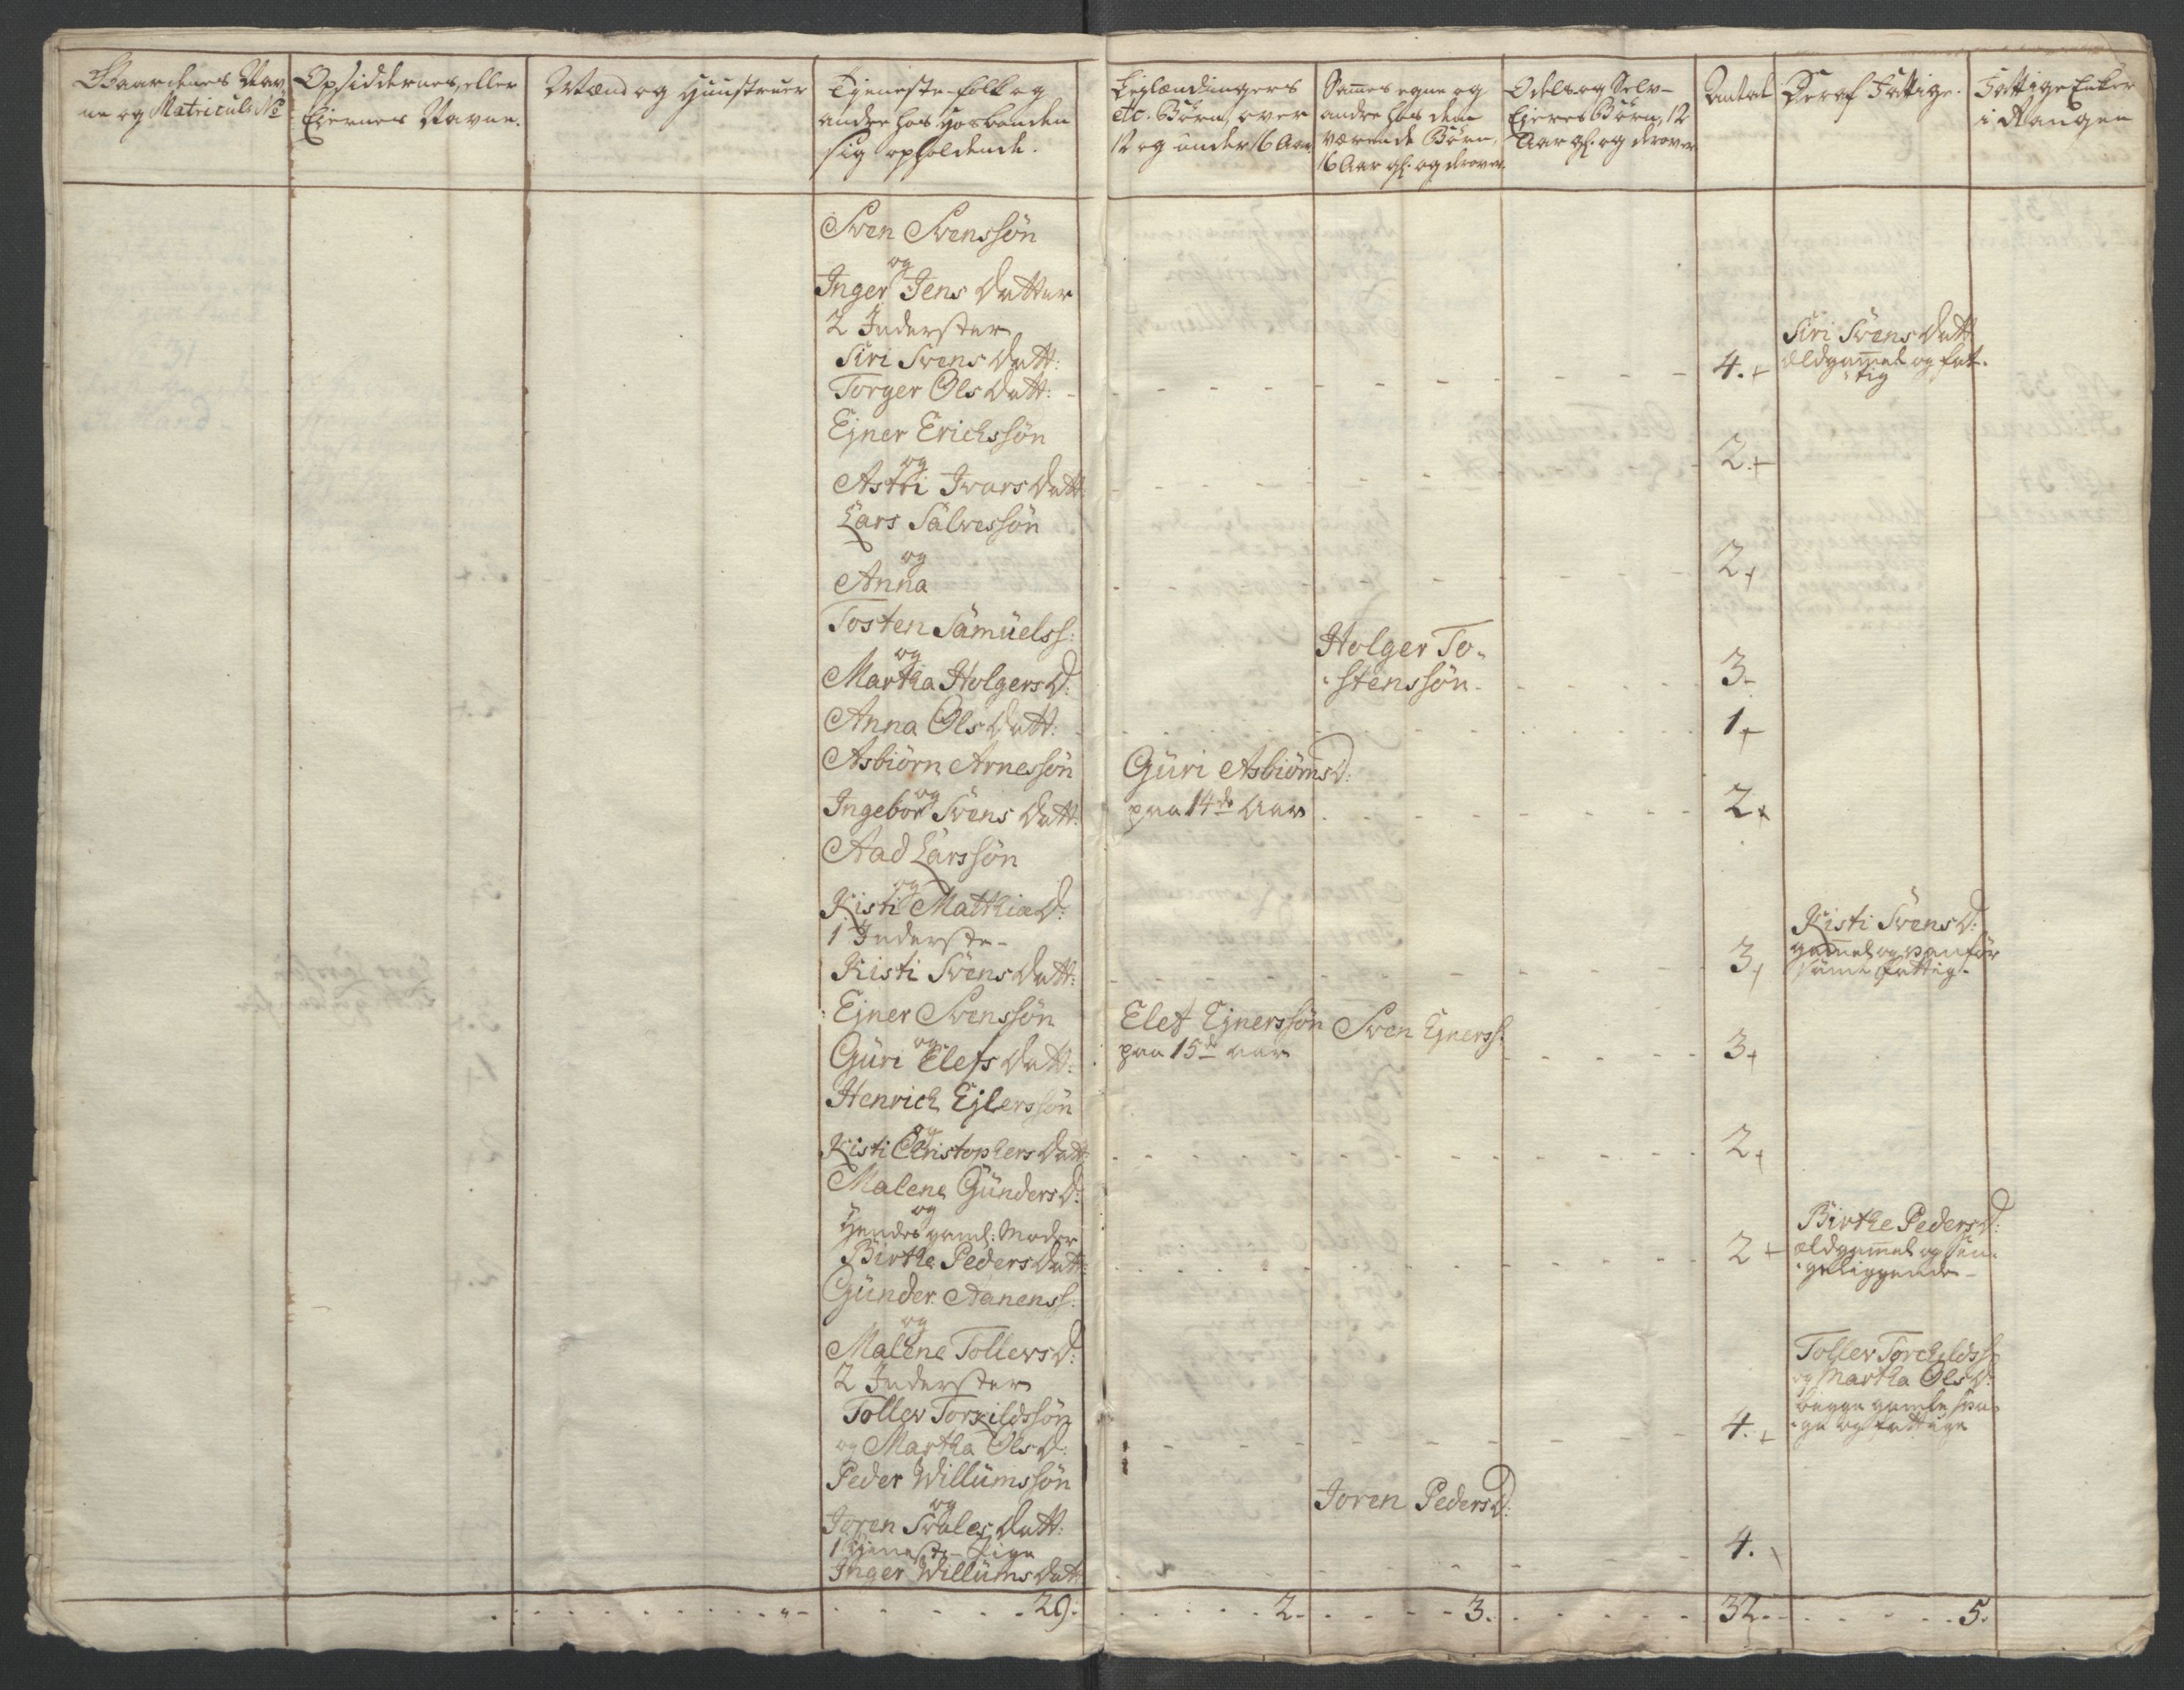 Gaardenes Nav
ne og Matricul: No
Opsiddernes, eller
Eiernes Navne.
Mænd og Hustruer
Tjeneste-folk og
andre hos Horbonden
sig opholdende.
Lejlændingers
etc. Børn, over
12 og under 16 Aar
Sammes egne og
andre hos dem
værende Børn,
16 Aar gl. og derover
Odels og Selv-
Ejeres Børn, 12
Aar gl. og derover
Antal
Deraf Fattige.
Fattige Enker
i Rangen
Sven Svenssøn
og
Inger Jens Datter
2 Inderster
Siri Svens Datt:
Torger Ols Datt:
4.
Siri Svens Datt
ældgammel og fat-
tig
Ejner Erichssøn
og
Astri Ivars Datt
2.
Lars Salvessøn
og
Anna
2
Tosten Samuelss:
og
Martha Holgers D:
Holger To-
stenssøn
3
Anna Ols Datt:
1
Asbiørn Arnessøn
og
Ingebor Svens Datt:
Guri Asbiørns D:
paa 14de Aar
2
Aad Larssøn
og
Kisti Mathia D:
1 Inderste
Kisti Svens Datt:
3
Kisti Svens D:
gammel og vanfør
samt fattig
Ejner Svenssøn
og
Guri Elefs Datt:
Elef Ejnerssøn
paa 15de Aar
Sven Ejnerss:
3
Henrich Ejlerssøn
og
Kisti Christophers Datt
2
Malene Gunders D:
og
Hendes gaml: Moder
Birthe Peders Datt:
2
Birthe Peders D:
ældgammel og sen-
geliggende
Gunder Aanenss:
og
Malene Tollevs D:
2 Inderster
Tollev Torkildssøn
og Martha Ols D:
4.
Tollev Torchildss
og Martha Ols D:
begge gamle sva-
ge og fattige
Peder Willumssøn
og
Joren Svales Datt:
1 Tjeneste-Pige
Inger Willums Datt
Joren Peders D:
4.
29.
2.
3.
32.
5.